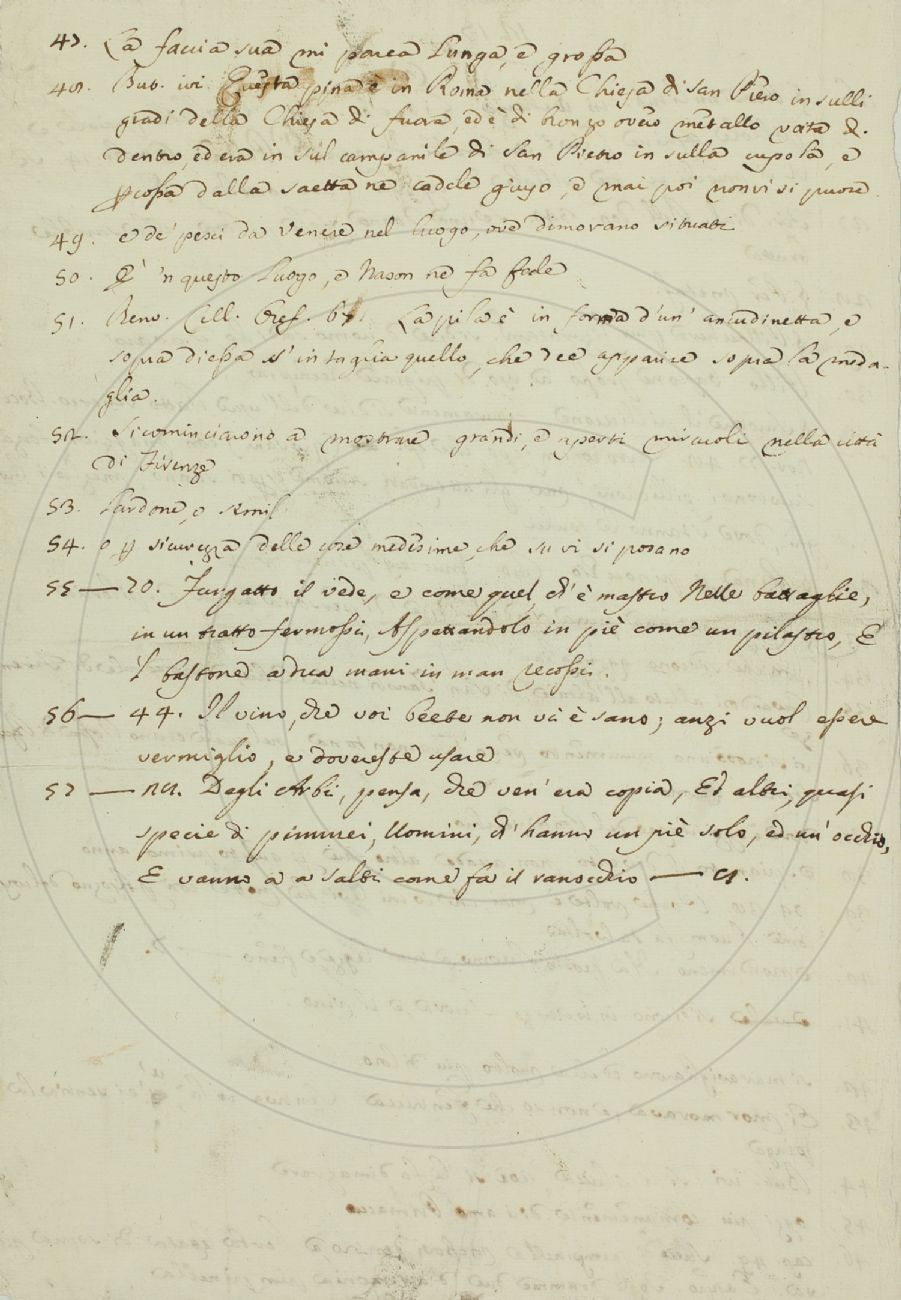 47. La faccia sua mi parea lunga, e grossa
48. But. ivi. Questa pina è in Roma nella Chiesa di San Piero in sulli
gradi della Chiesa di fuora, ed è di bronzo overo metallo vota di
dentro, ed era in sul campanile di San Pietro in sulla cupola, e
pcossa dalla saetta ne cadde giuso, e mai poi non vi si puose
49. e de' pesci da Venere nel luogo, ove dimorano situati
50. E' 'n questo luogo, e Nason ne fa fede
51. Benv. Cell. Oref. 67. La pila è in forma d'un' ancudinetta, e
sopra di essa s' intaglia quello, che dee apparire sopra la meda-
glia.
52. Si cominciarono a mostrare grandi, e aperti miracoli nella città
di Firenze
53. Lardone, o simil
54. o p sicurezza delle cose medesime, che su vi si posano
55 — 70. Furgatto il vede, e come quel, ch' è mastro Nelle battaglie,
in un tratto fermossi, Aspettandolo in piè come un pilastro, E
'l bastone a dua mani in man recossi.
56 — 44. Il vino, che voi beete non vi è sano; anzi vuol essere
vermiglio, e dovereste usare
57 — Degli Arbi, pensa, che ven' era copia, Ed altri, quasi
specie di pimmei, Uomini, ch' hanno un piè solo, ed un' occhio,
E vanno a a salti come fa il ranocchio —